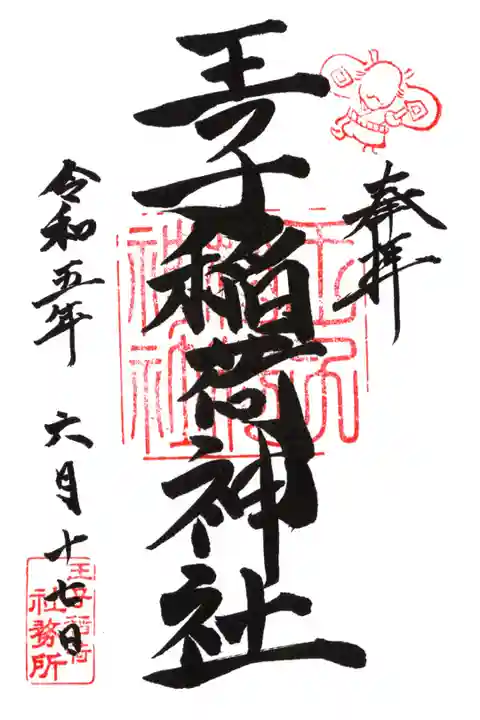 奉拝
王子稲荷神社
王子稲荷神社
令和五年 六月十七日
王子稲荷
社務所